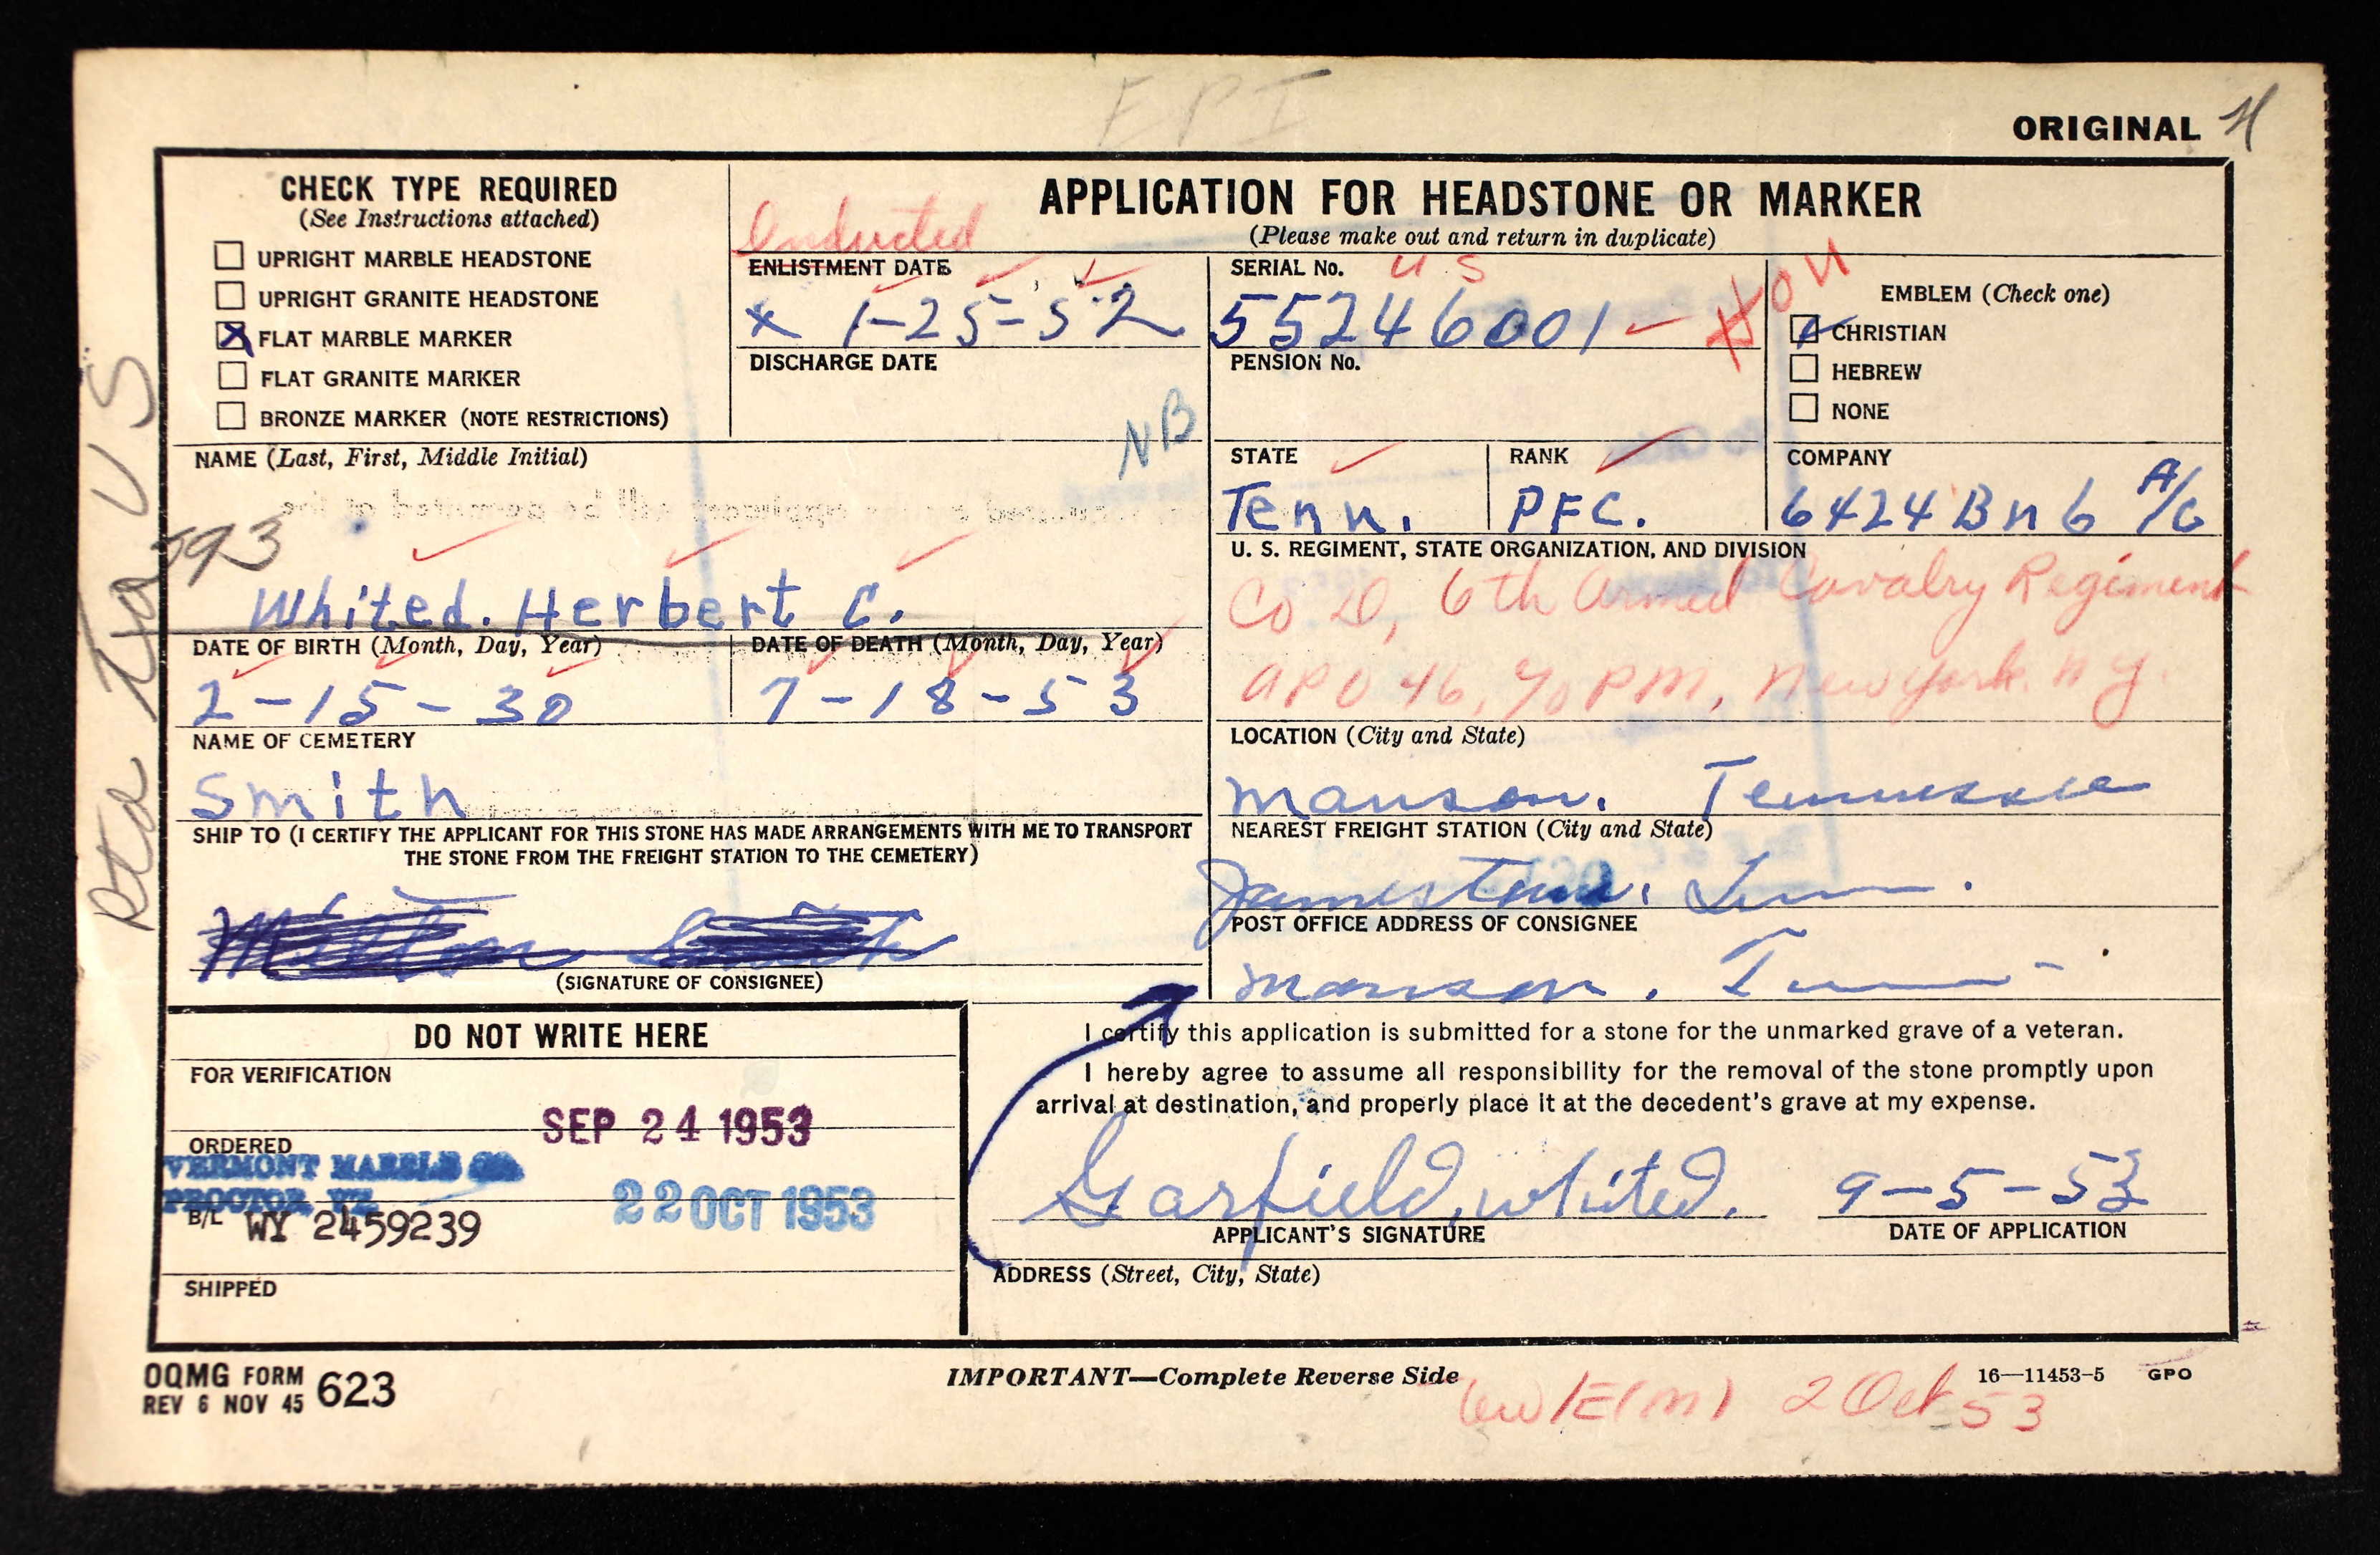 EPI
ORIGINAL H
CHECK TYPE REQUIRED
(See Instructions attached)
UPRIGHT MARBLE HEADSTONE
UPRIGHT GRANITE HEADSTONE
X FLAT MARBLE MARKER
FLAT GRANITE MARKER
BRONZE MARKER (NOTE RESTRICTIONS)
APPLICATION FOR HEADSTONE OR MARKER
(Please make out and return in duplicate)
Inducted
ENLISTMENT DATE
x 1-25-52
DISCHARGE DATE
NB
SERIAL No. U S
55246001
Hon
PENSION No.
EMBLEM (Check one)
CHRISTIAN
HEBREW
NONE
NAME (Last, First, Middle Initial)
Whited. Herbert C.
STATE
Tenn.
RANK
PFC.
COMPANY
6424 Bn 6 A/C
U. S. REGIMENT, STATE ORGANIZATION, AND DIVISION
Co D, 6th Armed Cavalry Regiment
APO 46, % PM, New York. N Y.
DATE OF BIRTH (Month, Day, Year)
2-15-30
DATE OF DEATH (Month, Day, Year)
7-18-53
NAME OF CEMETERY
Smith
LOCATION (City and State)
Manson. Tennessee
SHIP TO (I CERTIFY THE APPLICANT FOR THIS STONE HAS MADE ARRANGEMENTS WITH ME TO TRANSPORT
THE STONE FROM THE FREIGHT STATION TO THE CEMETERY)
NEAREST FREIGHT STATION (City and State)
Jamestown. Tenn.
(SIGNATURE OF CONSIGNEE)
POST OFFICE ADDRESS OF CONSIGNEE
Manson. Tenn
DO NOT WRITE HERE
FOR VERIFICATION
SEP 24 1953
ORDERED
VERMONT MARBLE CO.
PROCTOR, VT.
22 OCT 1953
B/L WY 2459239
SHIPPED
I certify this application is submitted for a stone for the unmarked grave of a veteran.
I hereby agree to assume all responsibility for the removal of the stone promptly upon
arrival at destination, and properly place it at the decedent's grave at my expense.
Garfield, Whited. 9-5-53
APPLICANT'S SIGNATURE
DATE OF APPLICATION
ADDRESS (Street, City, State)
OQMG FORM 623
REV 6 NOV 45
IMPORTANT—Complete Reverse Side
16—11453-5 GPO
2 Oct 53